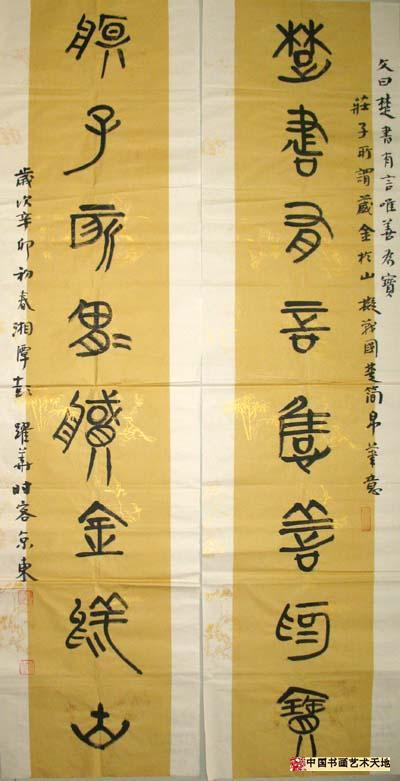 文曰楚書有言唯善為寶
莊子所謂藏金於山擬戰國楚簡帛筆意
楚書有言唯善為寶
莊子所謂藏金於山
歲次辛卯初春湘潭彭躍華時客京東
中国书画艺术天地